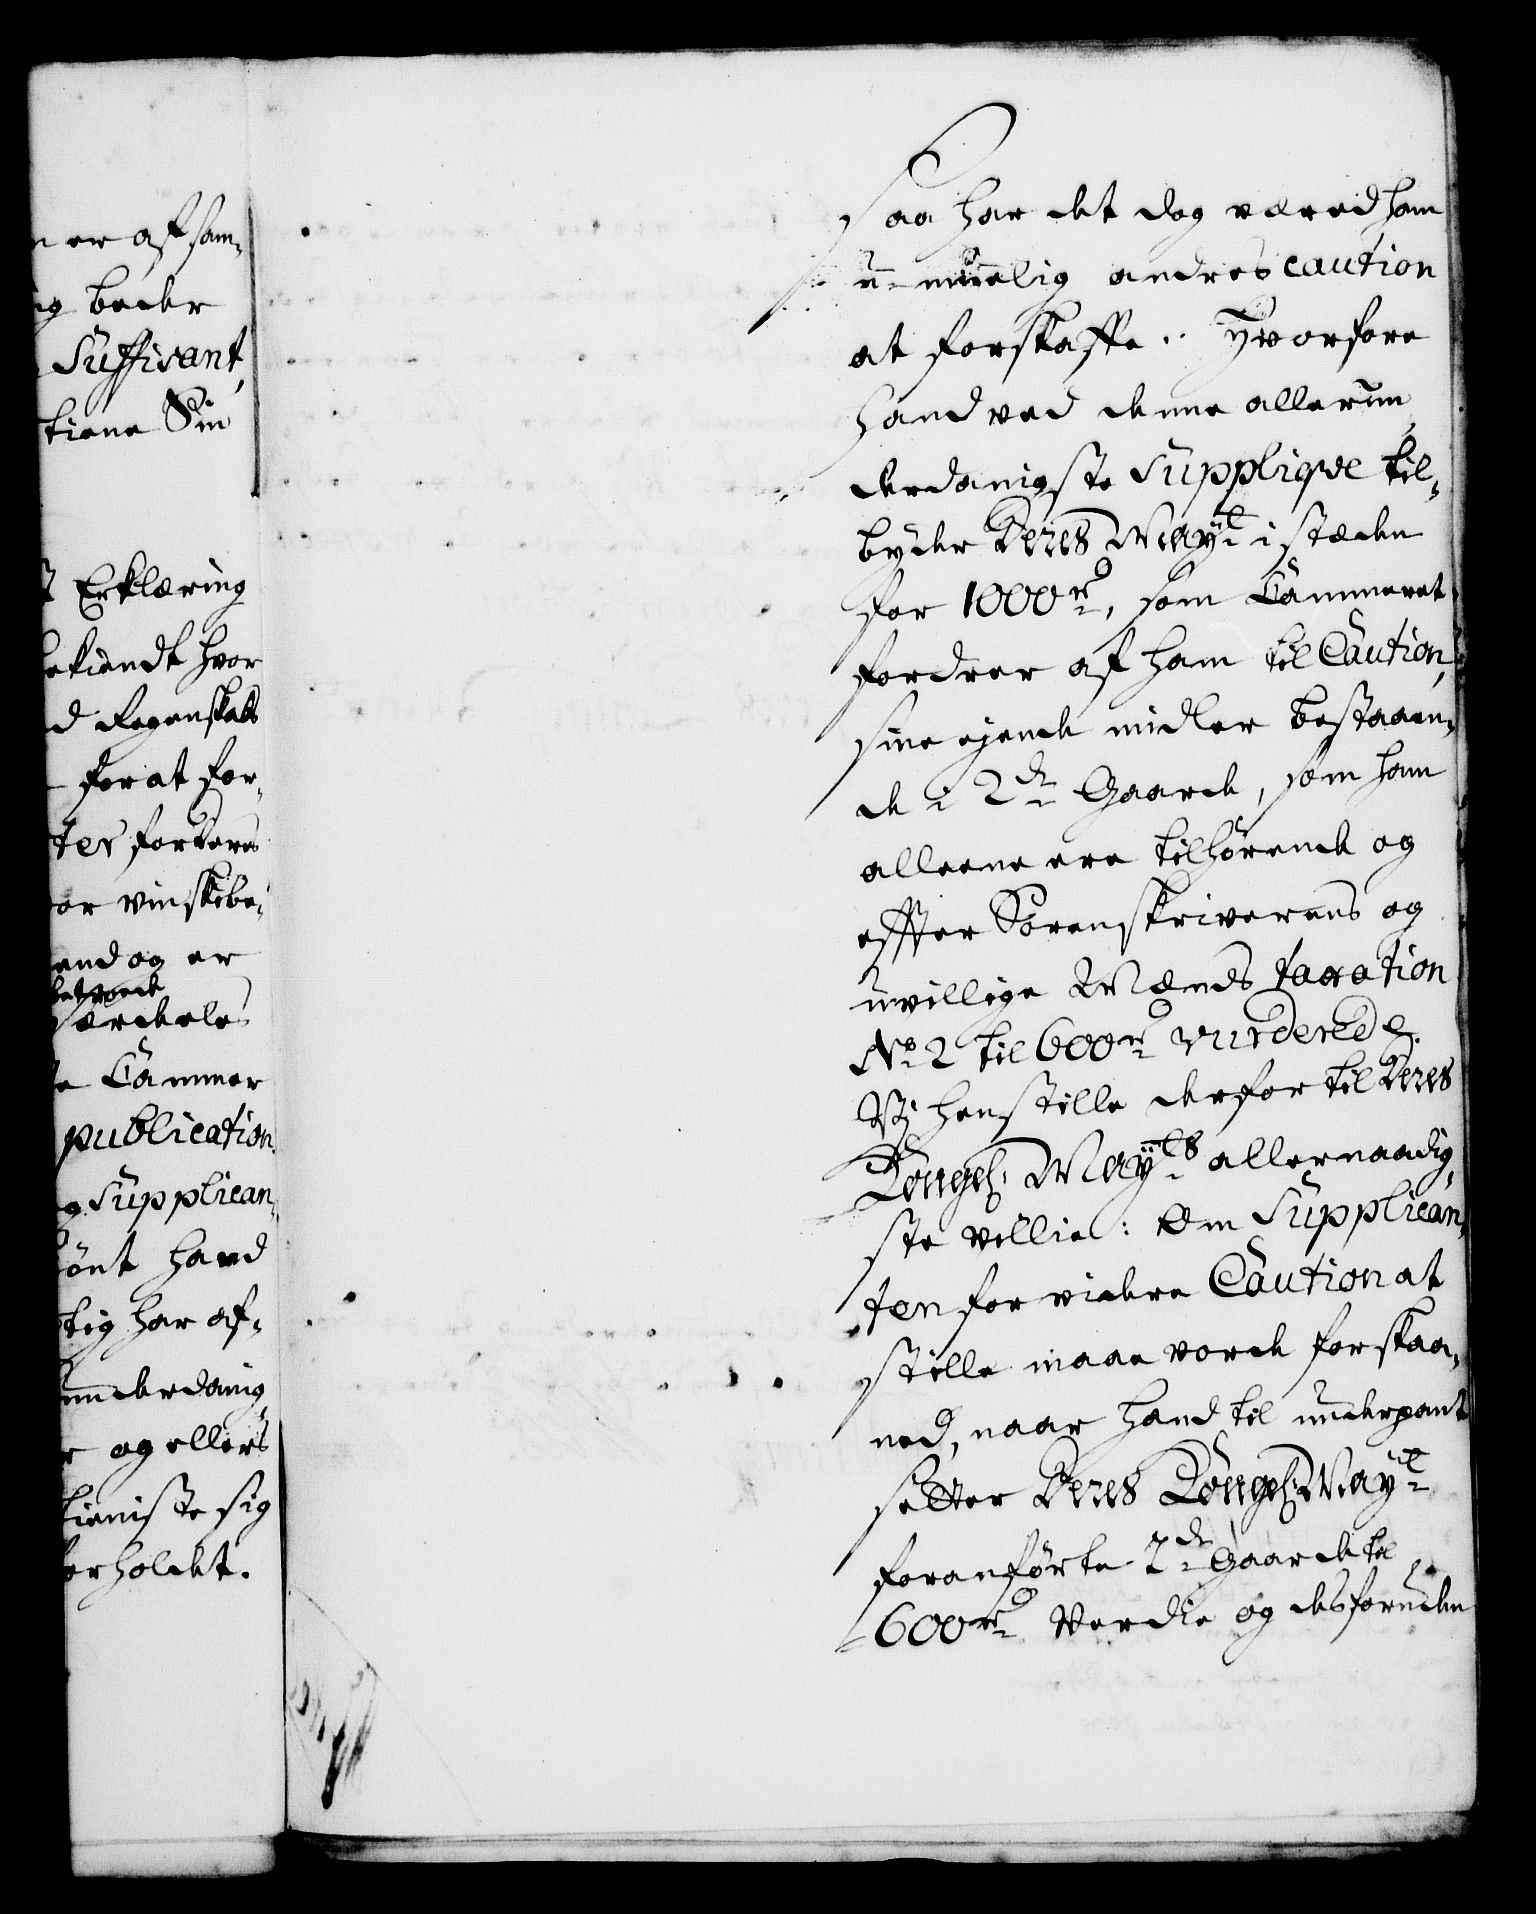 er af sam¬
beder
Suffisant,
tiene Sin
Erklæring
bekiendt hvor
d Regenskab
for at for¬
ter forderes
or vinskibe¬
end og er
særdeles
Cammer
publication
Supplican¬
hand
tig har af¬
underdanig
og ellers
tieniste sig
forholdet.
Saa har det dog værred ham
u-muelig andres caution
at forskaffe. Hvorfore
Hand ved denne allerun¬
derdanigste Supplique til¬
byder Deres Mayt i stæden
for 1000 rd, som Cammeret
fordrer af ham til Caution,
sine ejende midler bestaaen¬
de i 2de Gaarde, som ham
alleene ere tilhørende og
effter Sorenskriverens og
uvillige Mænds taxation
No 2 til 600 rd vurderede.
Vj henstille derfor til Deres
Kongel. Mayts allernaadig¬
ste villie: Om Supplican¬
ten for videre Caution at
stille maae vorde forskaa¬
ned, naar Hand til underpant
setter Deres Kongel. Mayt
foranførte 2de Gaarde til
600 rd Verdie og desforuden